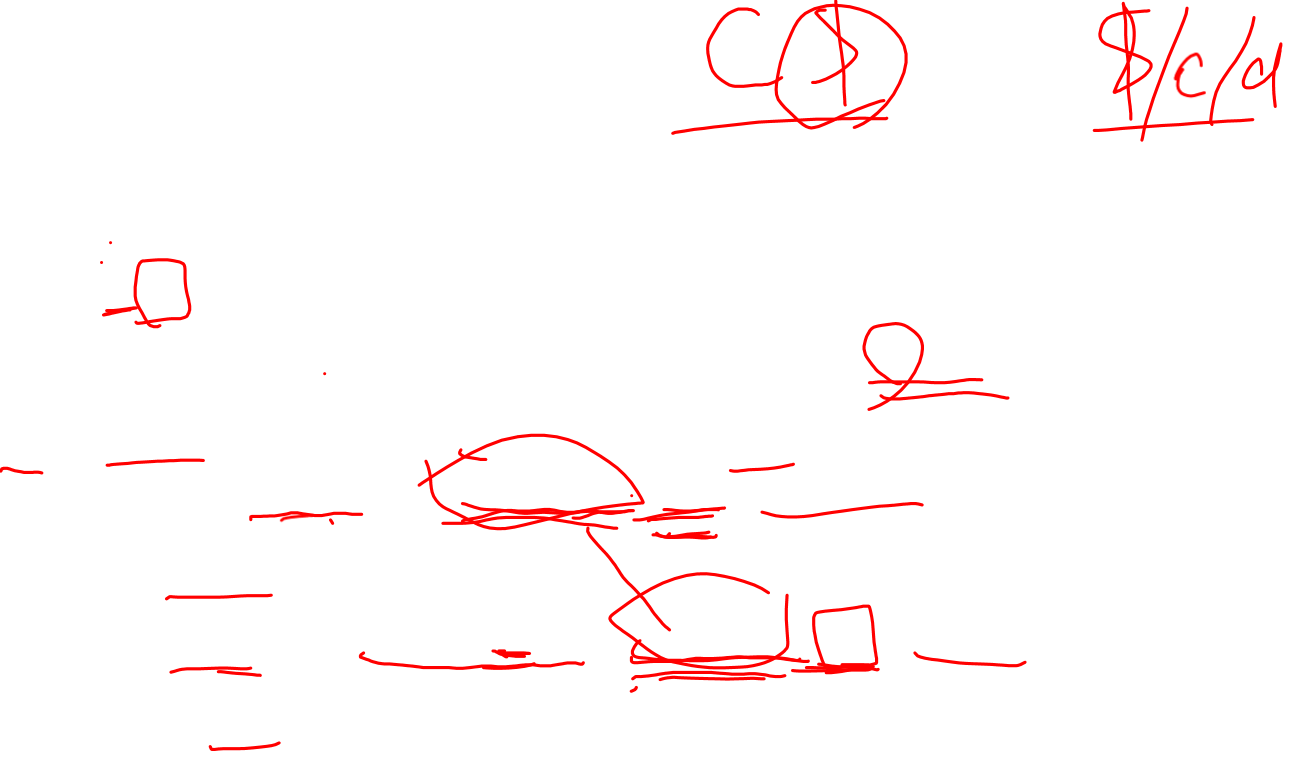 C$ $/c/d